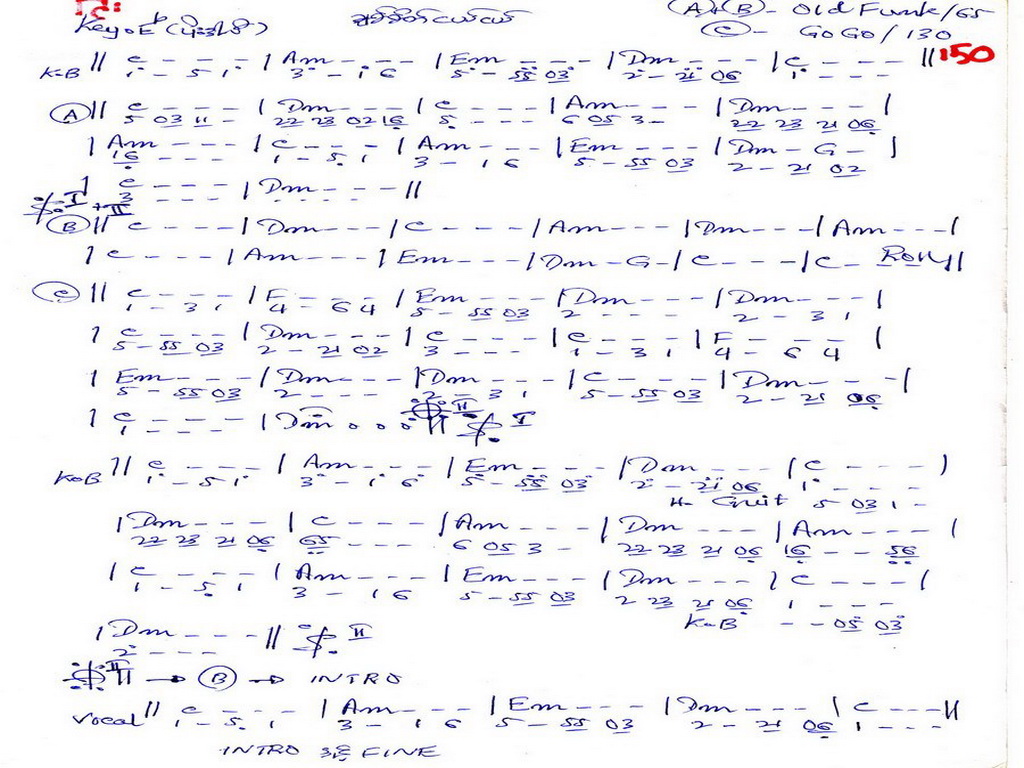 Key: E♭ Ⓐ+Ⓑ - Old Funk/65
ချစ်စိတ်ငယ်ငယ် Ⓒ - GoGo/130
K-B || C - - - - | Am - - - | Em - - - | Dm - - - | C - - - - || 150
1 - 5 1 3 - 1 6 5 - 55 03 2 - 21 06 1 - - -
Ⓐ || C - - - - | Dm - - - | C - - - - | Am - - - | Dm - - - |
5 03 11 - 22 23 02 16 5 - - - 6 05 3 - 22 23 21 06
| Am - - - | C - - - | Am - - - | Em - - - | Dm - G - |
16 - - - 1 - 5 1 3 - 1 6 5 - 55 03 2 - 21 02
| C - - - | Dm - - - ||
3 - - - - - - -
I + II
Ⓑ || C - - - - | Dm - - - | C - - - | Am - - - | Dm - - - | Am - - - |
| C - - - | Am - - - | Em - - - | Dm - G - | C - - - | C - Roll ||
Ⓒ || C - - - | F - - - | Em - - - | Dm - - - | Dm - - - |
1 - 3 1 4 - 6 4 5 - 55 03 2 - - - 2 - 3 1
| C - - - | Dm - - - | C - - - | C - - - | F - - - |
5 - 55 03 2 - 21 02 3 - - - 1 - 3 1 4 - 6 4
| Em - - - | Dm - - - | Dm - - - | C - - - - | Dm - - - |
5 - 55 03 2 - - - 2 - 3 1 5 - 55 03 2 - 21 06
| C - - - | Dm . . . || II I
1 - - -
K-B || C - - - | Am - - - | Em - - - | Dm - - - | C - - - |
1 - 5 1 3 - 1 6 5 - 55 03 2 - 21 06 1 - - -
H- Guit 5 03 1 -
| Dm - - - - | C - - - - | Am - - - | Dm - - - | Am - - - |
22 23 21 06 65 - - - 6 05 3 - 22 23 21 06 16 - - 56
| C - - - | Am - - - | Em - - - | Dm - - - | C - - - |
1 - 5 1 3 - 1 6 5 - 55 03 2 23 21 06 1 - - -
K-B - - 05 03
| Dm - - - - || II
2 - - -
II || → Ⓑ → INTRO
Vocal || C - - - - | Am - - - | Em - - - | Dm - - - | C - - - ||
1 - 5 1 3 - 1 6 5 - 55 03 2 - 21 06 1 - - -
INTRO FINE